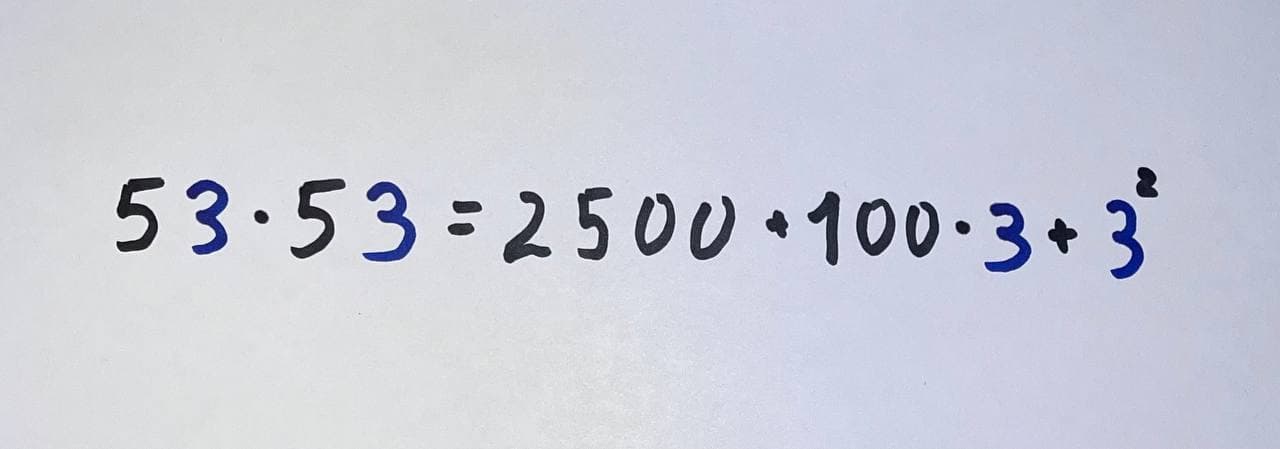 53·53=2500+100·3+3²